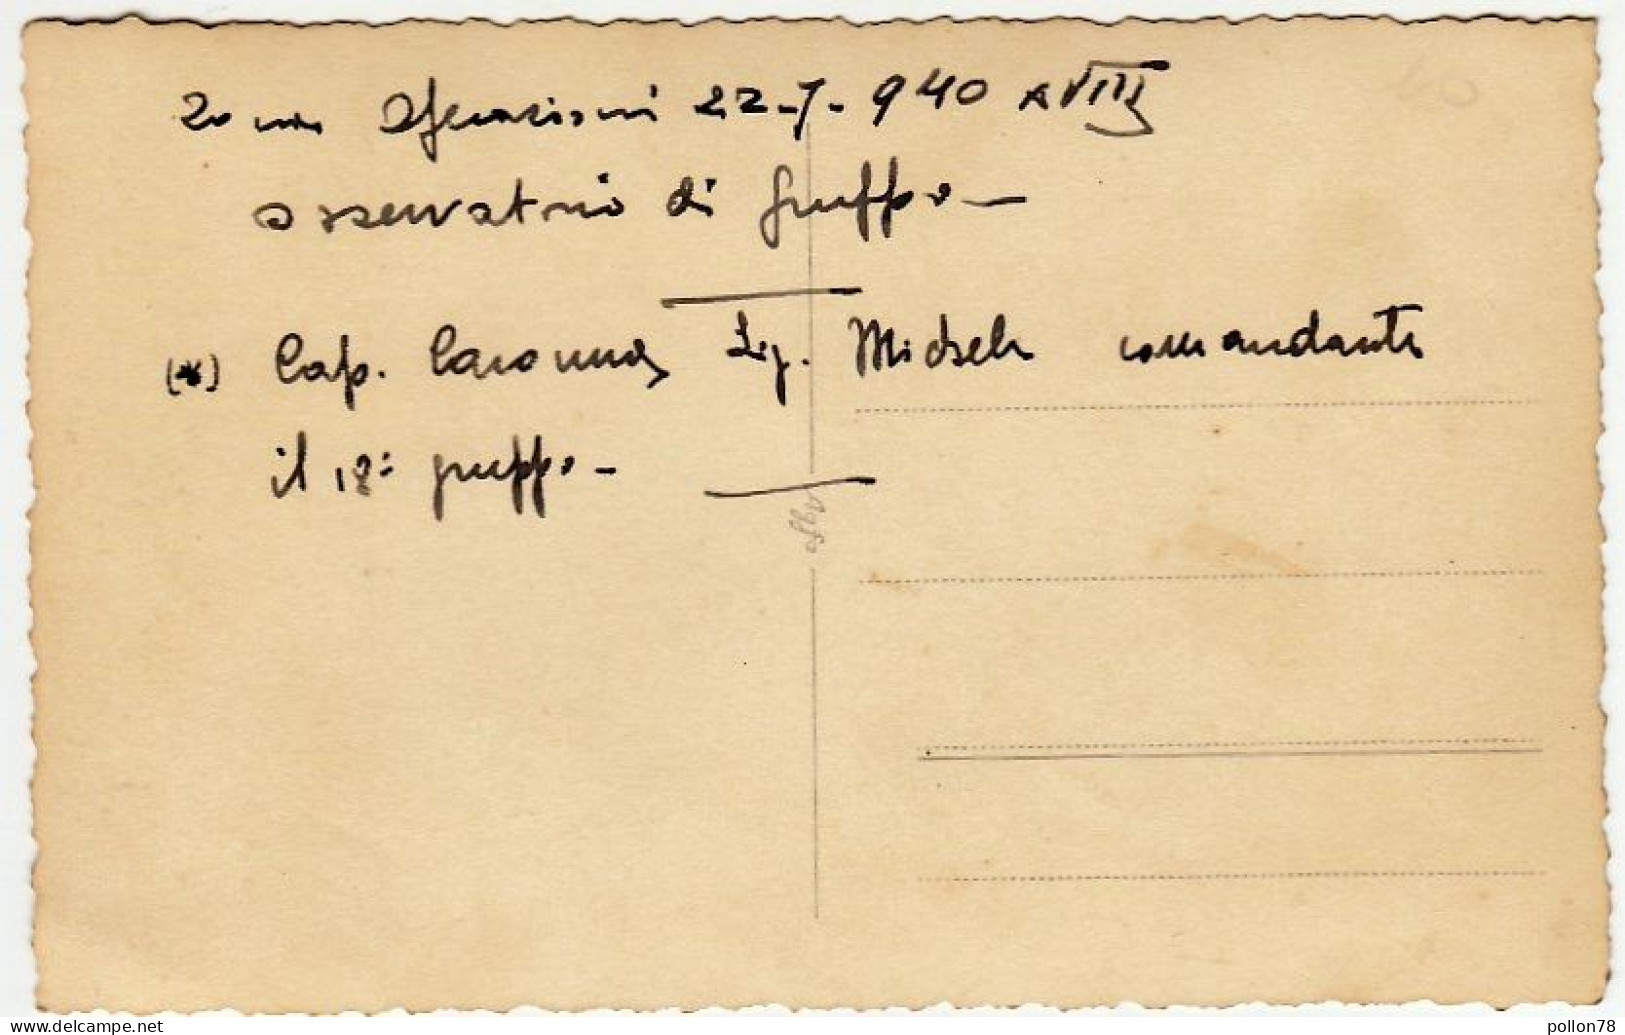 Zona Operazioni 22-7-940 XVIII
osservatorio di gruppo -
(*) Cap. Caronna Sig. Michele comandante
il 18° gruppo -
www.delcampe.net
pollon78